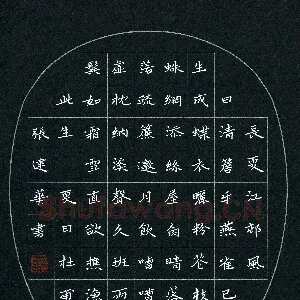 長夏江邨風
日清簷牙燕雀已
生成蝶衣曬粉花枝
蛛網添絲屋角晴落
落疏簾邀月飲嘈嘈
虛枕納溪聲久班兩
鬢如霜雪直欲樵漁
此生夏日杜甫
張建華書